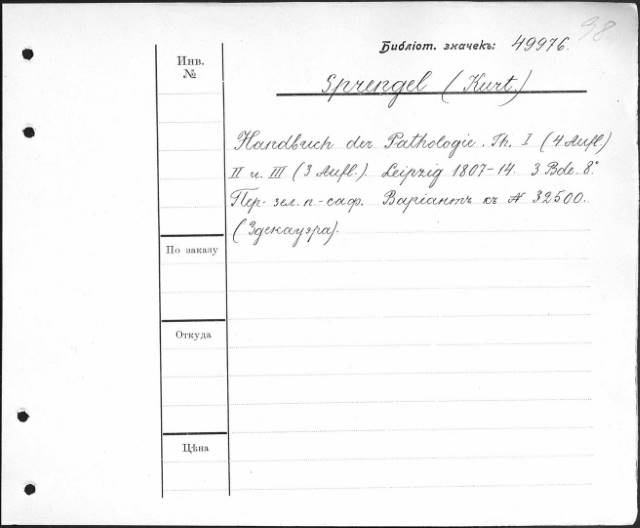 98
Библіот. значекъ: 49976.
Инв.
№
Sprengel (Kurt.)
Handbuch der Pathologie. Th. I (4 Aufl.)
II u. III (3 Aufl.). Leipzig 1807-14. 3 Bde. 8°.
Пер. зел. п.-саф. Варіантъ къ № 32500.
(Здекауэра).
По заказу
Откуда
Цѣна